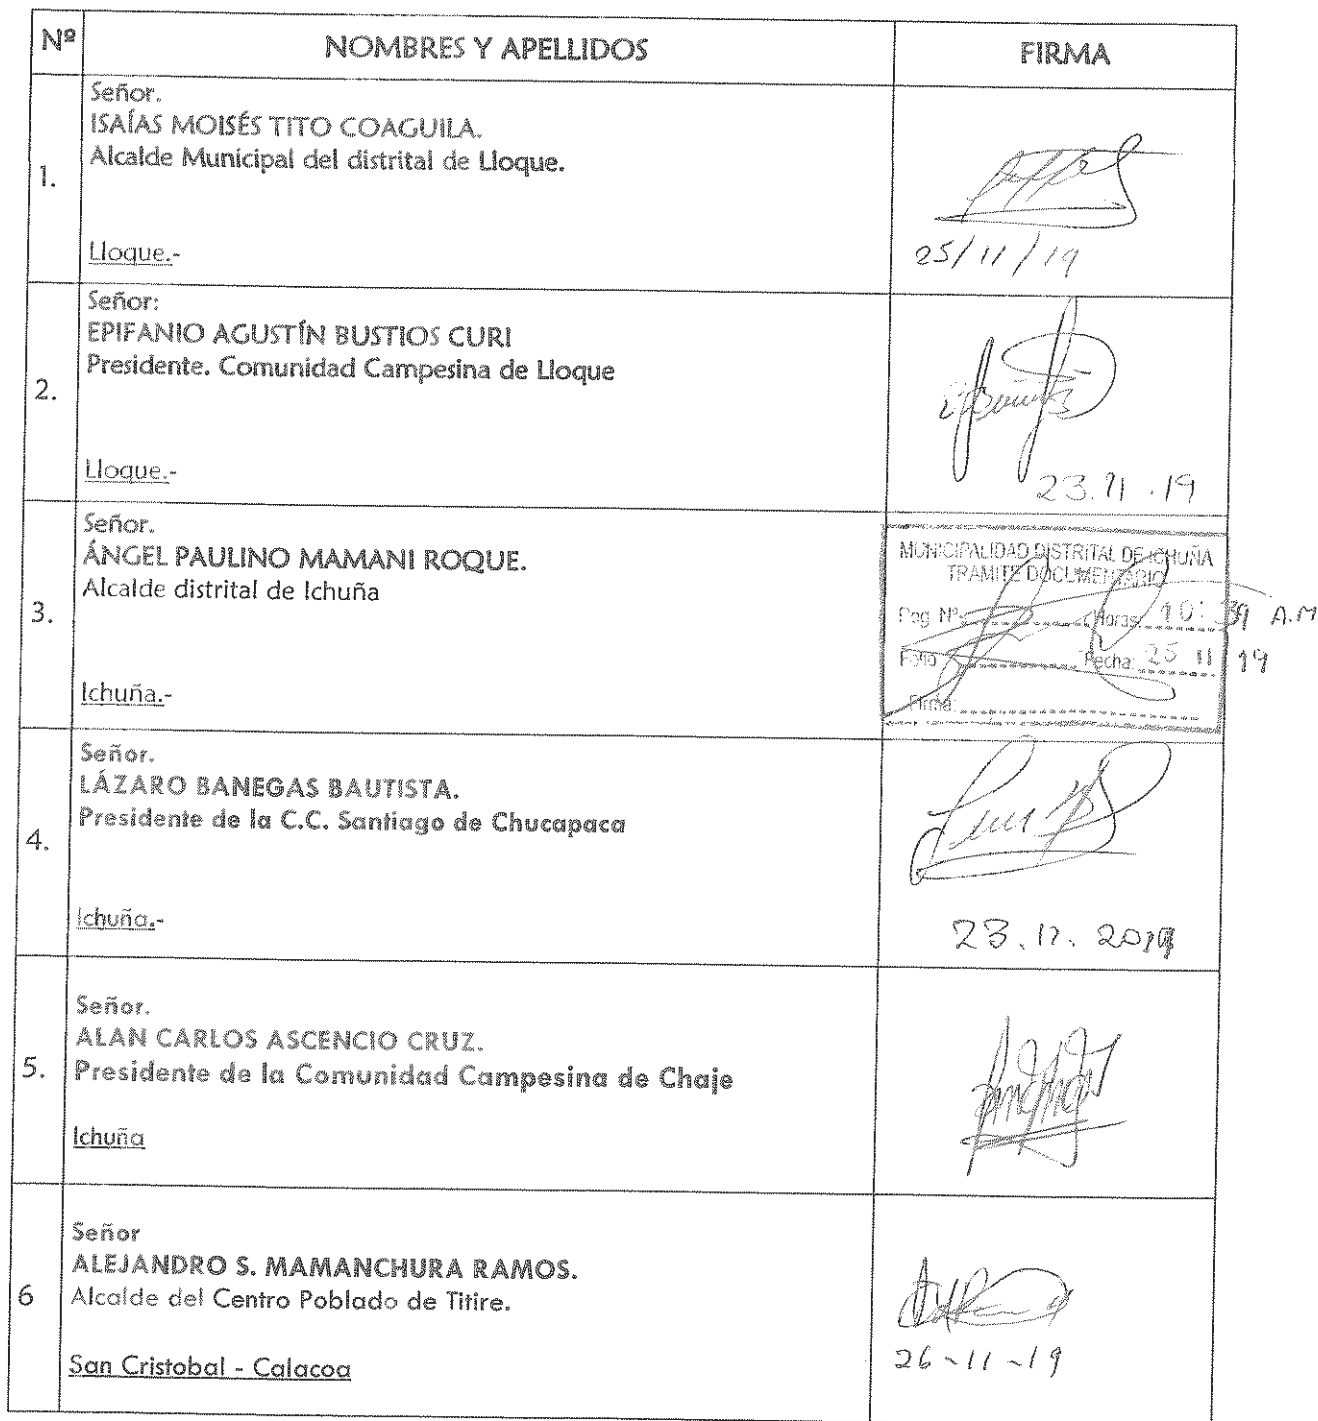 Nº NOMBRES Y APELLIDOS FIRMA
1.
Señor.
ISAÍAS MOISÉS TITO COAGUILA.
Alcalde Municipal del distrital de Lloque.
Lloque.-
25/11/19
2.
Señor:
EPIFANIO AGUSTÍN BUSTIOS CURI
Presidente. Comunidad Campesina de Lloque
Lloque.-
23.11.19
3.
Señor.
ÁNGEL PAULINO MAMANI ROQUE.
Alcalde distrital de Ichuña
Ichuña.-
MUNICIPALIDAD DISTRITAL DE ICHUÑA
TRAMITE DOCUMENTARIO
Reg Nº Horas: 10:39 A.M
Folio Fecha: 25 11 19
Firma:
4.
Señor.
LÁZARO BANEGAS BAUTISTA.
Presidente de la C.C. Santiago de Chucapaca
Ichuña.-
23.11.2019
5.
Señor.
ALAN CARLOS ASCENCIO CRUZ.
Presidente de la Comunidad Campesina de Chaje
Ichuña
6
Señor
ALEJANDRO S. MAMANCHURA RAMOS.
Alcalde del Centro Poblado de Titire.
San Cristobal - Calacoa
26-11-19